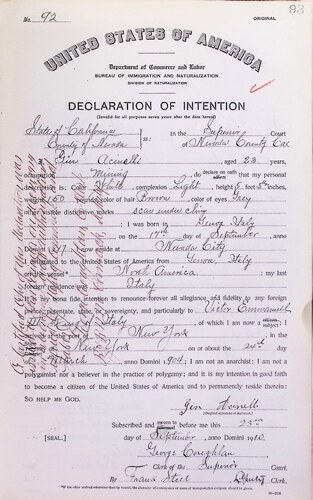 No. 92
ORIGINAL
93
UNITED STATES OF AMERICA
Department of Commerce and Labor
BUREAU OF IMMIGRATION AND NATURALIZATION
DIVISION OF NATURALIZATION
DECLARATION OF INTENTION
(Invalid for all purposes seven years after the date hereof)
State of California
County of Nevada ss: In the Superior Court
of Nevada County Cal
I, Gin Acinelli, aged 23 years,
occupation Mining, do declare on oath that my personal
description is: Color White, complexion Light, height 5 feet 5 inches,
weight 150 pounds, color of hair Brown, color of eyes Grey
other visible distinctive marks scar under chin
I was born in Genoa Italy
on the 17th day of September, anno
Domini 1887; I now reside at Nevada City
I emigrated to the United States of America from Genoa Italy
on the vessel North America; my last
foreign residence was Italy
It is my bona fide intention to renounce forever all allegiance and fidelity to any foreign
prince, potentate, state, or sovereignty, and particularly to Victor Emmanuel
III King of Italy, of which I am now a subject;
I arrived at the port of New York, in the
State of New York on or about the day
of March, anno Domini 1904; I am not an anarchist; I am not a
polygamist nor a believer in the practice of polygamy; and it is my intention in good faith
to become a citizen of the United States of America and to permanently reside therein:
SO HELP ME GOD.
Gin Acinelli
(Original signature of declarant)
Subscribed and sworn to before me this 23rd
[SEAL.] day of September, anno Domini 1910
George Coughlan
Clerk of the Superior Court.
By Frank Steel, Deputy Clerk.